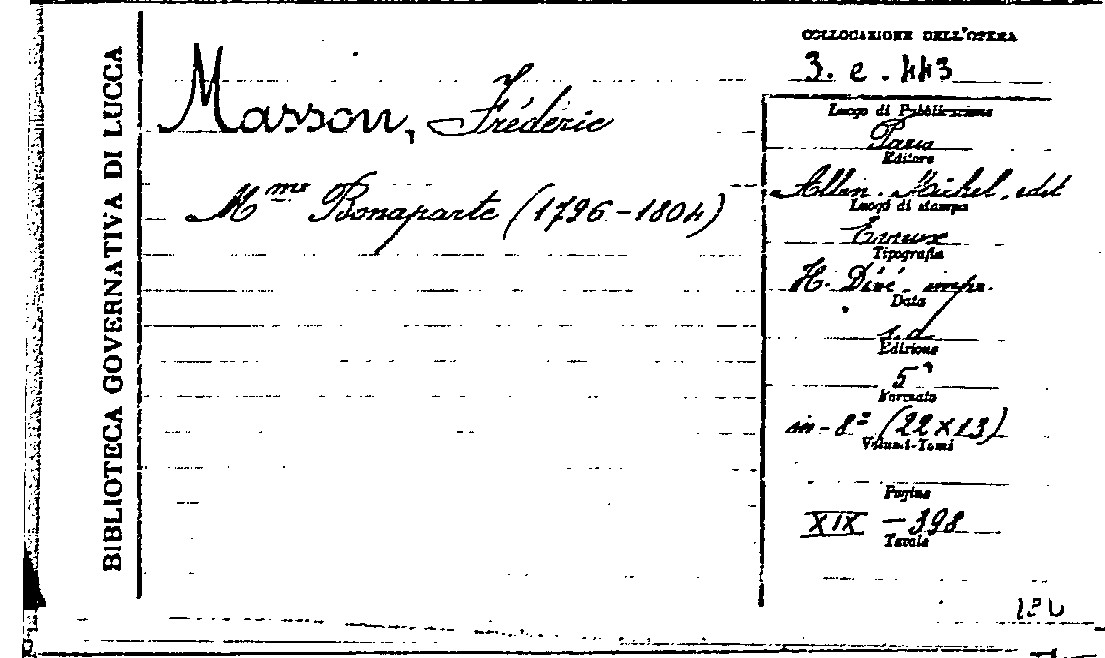 BIBLIOTECA GOVERNATIVA DI LUCCA
Masson, Frédéric
Mme Bonaparte (1796-1804)
COLLOCAZIONE DELL'OPERA
3. e. 443
Luogo di Pubblicazione
Paris
Editore
Albin. Michel. edit
Luogo di stampa
Evreux
Tipografia
H. Dévé. imp.
Data
s. d.
Edizione
5ª
Formato
in-8º (22x13)
Volumi-Tomi
Pagine
XIX - 398
Tavole